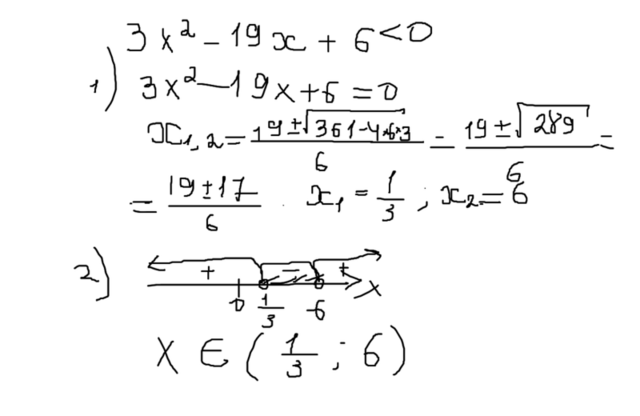 3x² - 19x + 6 < 0
1) 3x² - 19x + 6 = 0
x₁,₂ = (19 ± √(361 - 4·6·3))/6 = (19 ± √289)/6 =
= (19 ± 17)/6 . x₁ = 1/3 ; x₂ = 6
2) + - + 
0 1/3 6 x
x ∈ (1/3 ; 6)